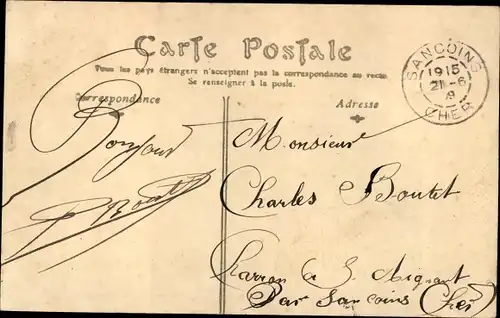 Carte Postale
Tous les pays étrangers n'acceptent pas la correspondance au recto
Se renseigner à la poste.
Correspondance
Adresse
SANCOINS
1915
21-6
CHER
Bonjour
Monsieur
Charles Boutet
à S. Aignant
Par Sancoins Cher